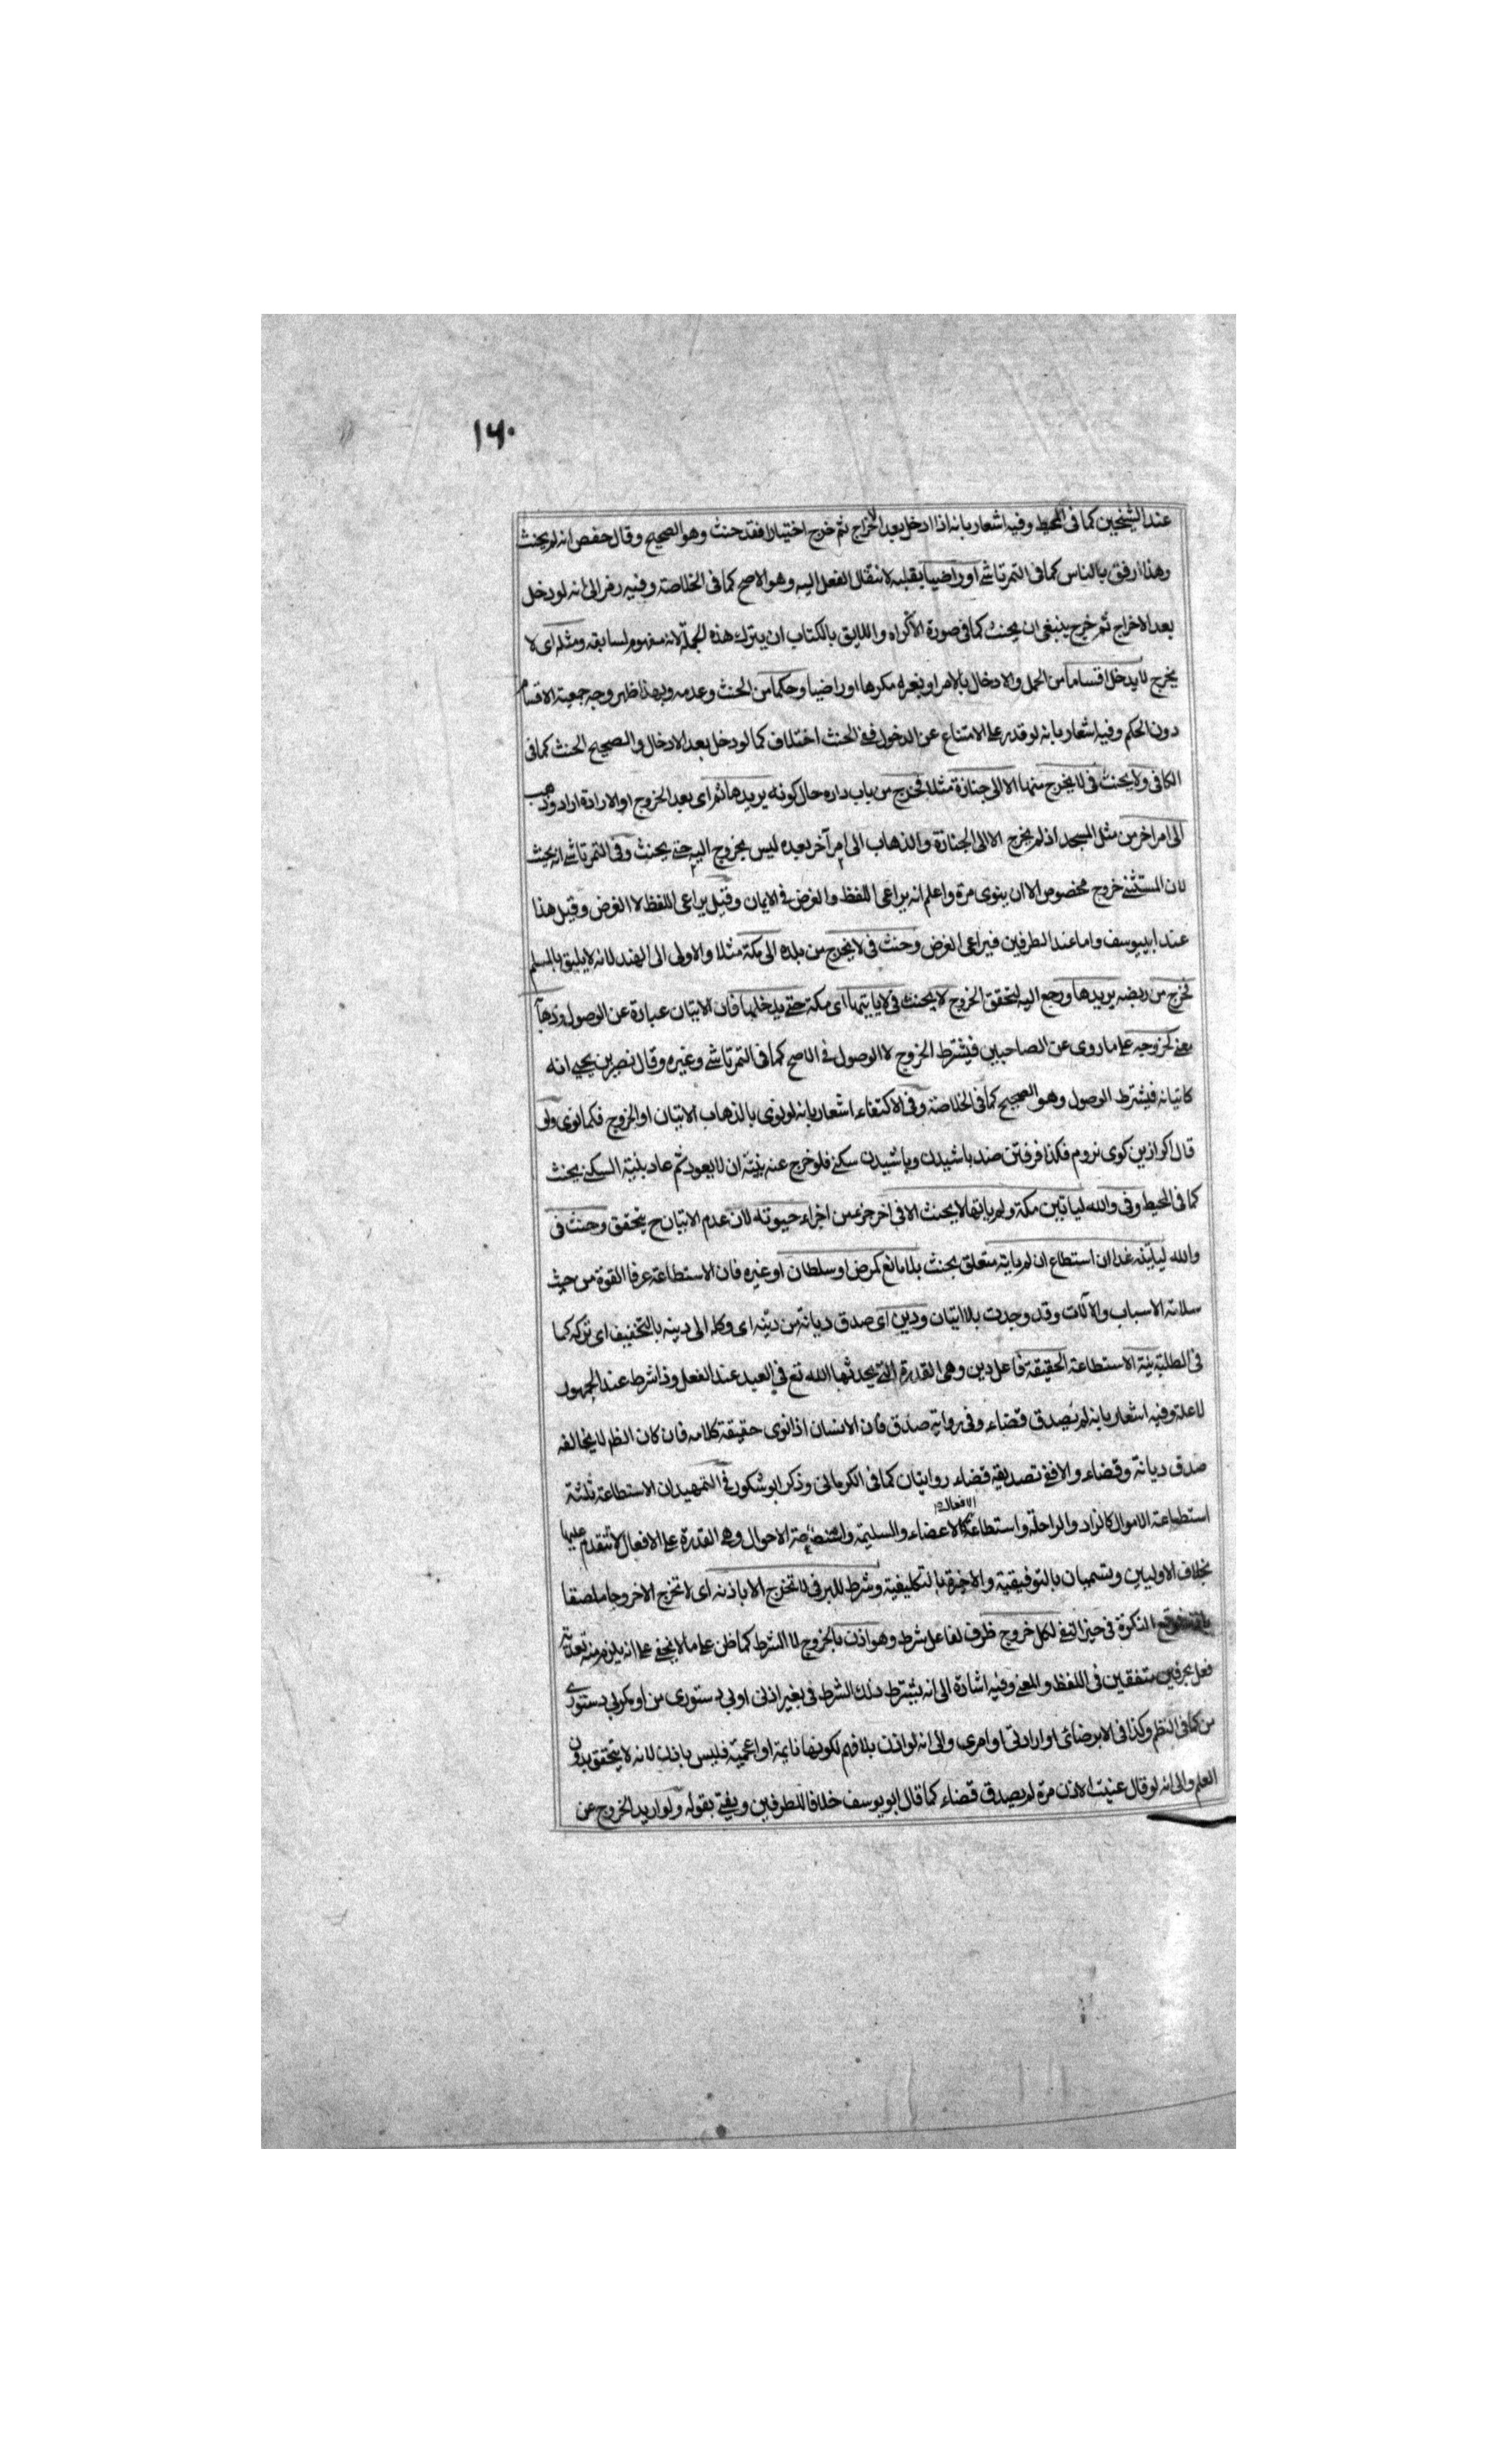 ١٦٠
عند الشيخين كما فى المحيط وفيه اشعار بانه اذا ادخل بعد الاخراج ثم خرج اختيارا فقد حنث وهو الصحيح وقال حفص انه لم يحنث
وهذا ارفق بالناس كما فى التمرتاشى او راضيا بقلبه لانتقال الفعل اليه وهو الاصح كما فى الخلاصة وفيه رمز الى انه لو دخل
بعد الاخراج ثم خرج ينبغى ان يحنث كما فى صورة الاكراه واللايق بالكتاب ان يترك هذه الجملة لانه مفهوم لسابقه ومثله اى لا
يخرج لا يدخل اقساما من الحمل والادخال بالامر او بغيره مكرها او راضيا وحكما من الحنث وعدمه وبهذا ظهر وجه جمعية الاقسام
دون الحكم وفيه اشعار بانه لو قدر على الامتناع عن الدخول ففى الحنث اختلاف كما لو دخل بعد الادخال والصحيح الحنث كما فى
الكافى ولا يحنث فى لا يخرج منها الا الى جنازة مثلا فخرج من باب داره حال كونه يريدها ثم اى بعد الخروج او الارادة اراد وذهب
الى امر اخر من مثل المسجد اذ لم يخرج الا الى الجنازة والذهاب الى امر آخر بعده ليس بخروج اليه حتى يحنث وفى التمرتاشى انه يحنث
لان المستثنى خروج مخصوص الا ان ينوى مرة واعلم انه يراعى اللفظ والغرض فى الايمان وقيل يراعى اللفظ لا الغرض وقيل هذا
عند ابى يوسف واما عند الطرفين فيراعى الغرض وحنث فى لا يخرج من بلده الى مكة مثلا والاولى الى الهند لانه لا يليق بالمسلم
فخرج من ربضه يريدها ورجع اليه لتحقق الخروج لا يحنث فى لا ياتيها اى مكة حتى يدخلها فان الاتيان عبارة عن الوصول وذهابه
يعنى كخروجه على ما روى عن الصاحبين فيشترط الخروج لا الوصول فى الاصح كما فى التمرتاشى وغيره وقال نصير بن يحيى انه
كاتيانه فيشترط الوصول وهو الصحيح كما فى الخلاصة وفى الاكتفاء اشعار بانه لو نوى بالذهاب الاتيان او الخروج فكما نوى ولو
قال اكر ازين كوى نروم فكذا فرفتن ضد باشيدن وباشيدن سكنى فلو خرج عنه بنية ان لا يعود ثم عاد بنية السكنى يحنث
كما فى المحيط وفى والله لياتين مكة ولم ياتها لا يحنث الا فى اخر جزء من اجزاء حيوته لان عدم الاتيان ح يتحقق وحنث فى
والله لياتينه غدا ان استطاع ان لم ياته متعلق بحنث بلا مانع كمرض او سلطان او غيره فان الاستطاعة عرفا القوة من حيث
سلامة الاسباب والآلات وقد وجدت بلا اتيان ودين اى صدق ديانة من دينه اى وكله الى دينه بالتخفيف اى تركه كما
فى الطلبة بنية الاستطاعة الحقيقة فاعل دين وهى القدرة التى يحدثها الله تع فى العبد عند الفعل وذا شرط عند الجمهور
لا علة وفيه اشعار بانه لم يصدق قضاء وفى رواية صدق فان الانسان اذا نوى حقيقة كلامه فان كان الظم لا يخالفه
صدق ديانة وقضاء والا ففى تصديقه قضاء روايتان كما فى الكرمانى وذكر ابو شكور فى التمهيد ان الاستطاعة ثلثة
استطاعة الاموال كالزاد والراحلة واستطاعة الافعال كالاعضاء والسليمة واستطاعة الاحوال وهى القدرة على الافعال لا تتقدم عليها
بخلاف الاوليين وتسميان بالتوفيقية والاخيرة بالتكليفية وشرط للبر فى لا تخرج الا باذنه اى لا تخرج الا خروجا ملصقا
النكرة فى حيز النفى لكل خروج ظرف لفاعل شرط وهو اذن بالخروج لا الشرط كما ظن على ما لا يخفى على انه يلزم منه تعدية
فعل بحرفين متفقين فى اللفظ والمعنى وفيه اشارة الى انه يشترط ذلك الشرط فى بغير اذنى او بى دستورى من او مكر بى دستورى
من كما فى النظم وكذا فى الا برضائى او ارادتى او امرى والى انه لو اذن بلا فهم لكونها نايمة او اعجمية فليس باذن لانه لا يتحقق بدون
العلم والى انه لو قال عنيت الاذن مرة لم يصدق قضاء كما قال ابو يوسف خلافا للطرفين ويفتى بقوله ولو اريد الخروج عن